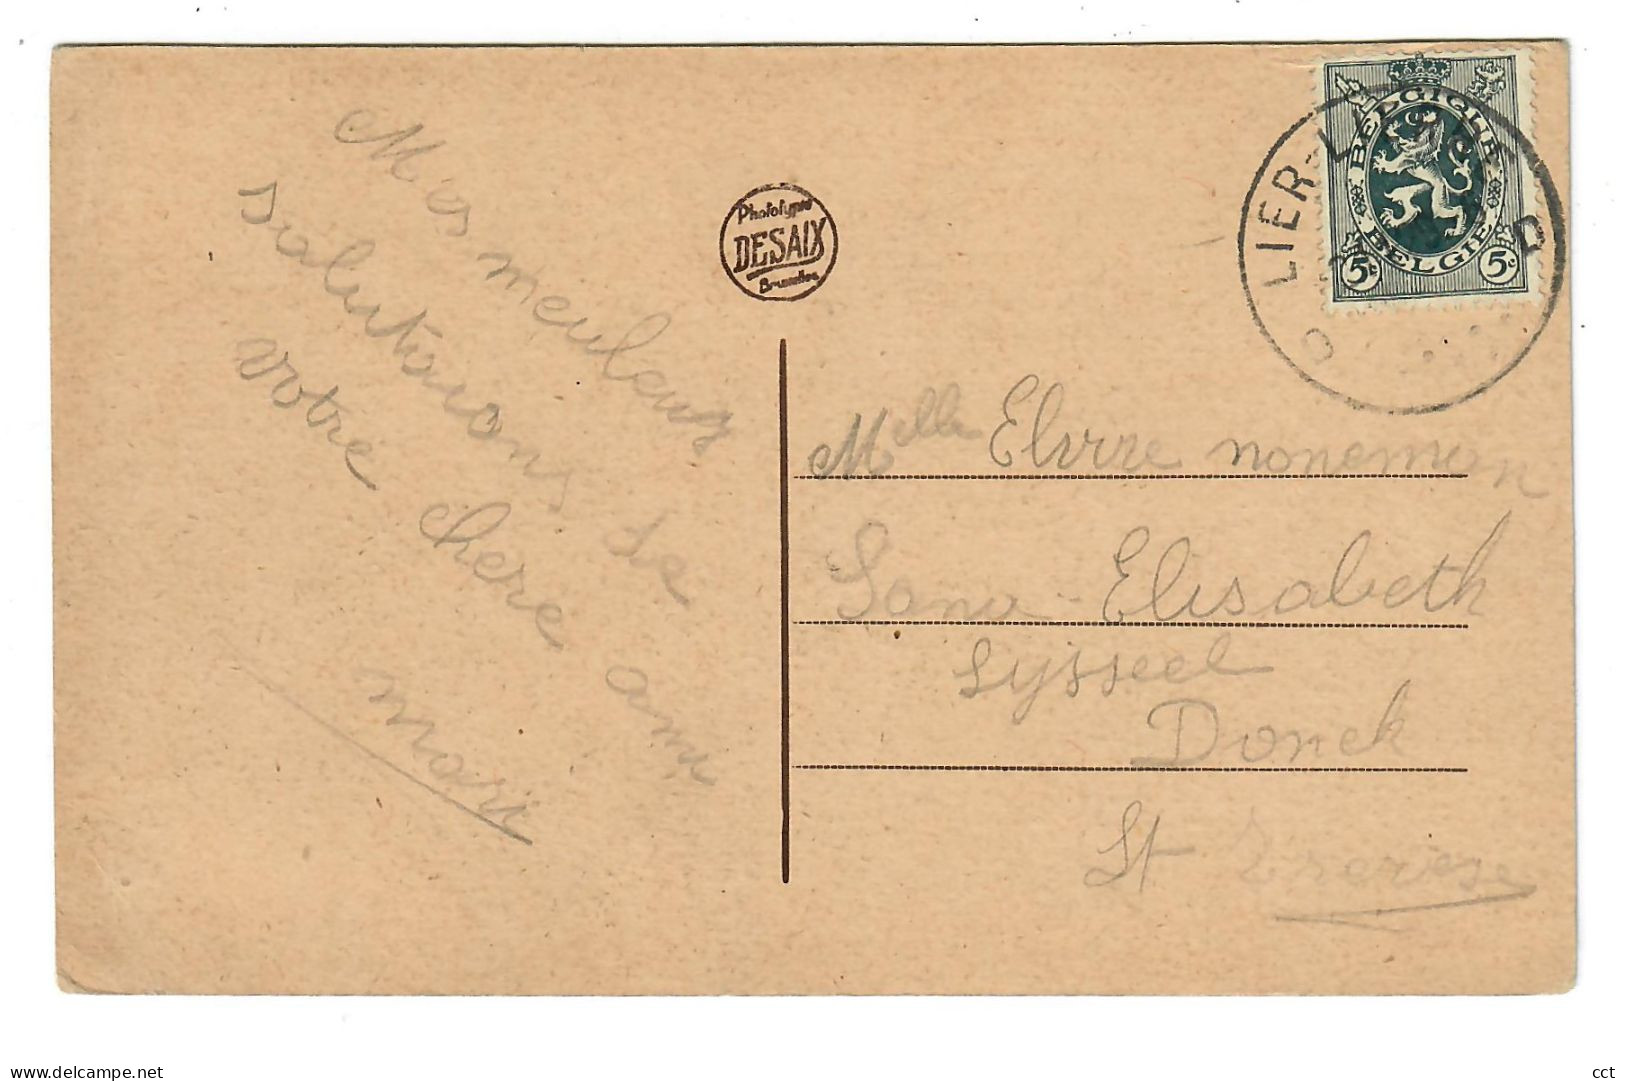 Mes meuleus
salutaions de
votre chere ami
mari
Phototypie
DESAIX
Bruxelles
BELGIQUE
BELGIË
5c 5c
LIER
Melle Elvire nonemon
Sana-Elisabeth
Lysseel
Donck
St
delcampe.net
cct